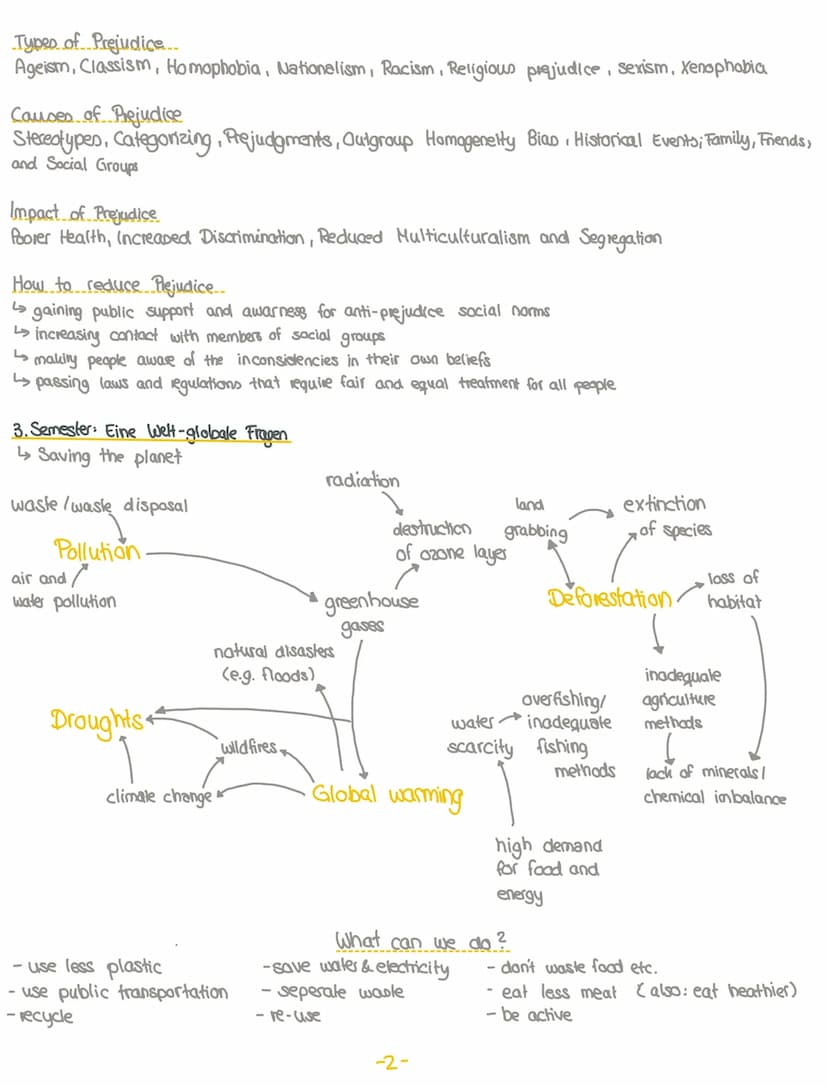 Types of Prejudice
Ageism, Classism, Homophobia, Nationalism, Racism, Religious prejudice, sexism, Xenophobia
Causes of Prejudice
Stereotypes, Categorizing, Prejudgments, Outgroup Homogeneity Bias, Historical Events; Family, Friends,
and Social Groups
Impact of Prejudice
Poorer Health, Increased Discrimination, Reduced Multiculturalism and Segregation
How to reduce Prejudice
↳ gaining public support and awarness for anti-prejudice social norms
↳ increasing contact with members of social groups
↳ making people aware of the inconsistencies in their own beliefs
↳ passing laws and regulations that require fair and equal treatment for all people
3. Semester: Eine Welt-globale Fragen
↳ Saving the planet
waste/waste disposal
Pollution
air and
water pollution
radiation
destruction
of ozone layer
greenhouse
gases
natural disasters
(e.g. floods)
Droughts
wildfires
climate change
Global warming
land
grabbing
extinction
of species
Deforestation
loss of
habitat
inadequate
agriculture
methods
lack of minerals/
chemical imbalance
water
scarcity
overfishing/
inadequate
fishing
methods
high demand
for food and
energy
What can we do?
- use less plastic
- use public transportation
- recycle
- save water & electricity
- seperate waste
- re-use
- don't waste food etc.
- eat less meat (also: eat heathier)
- be active
-2-